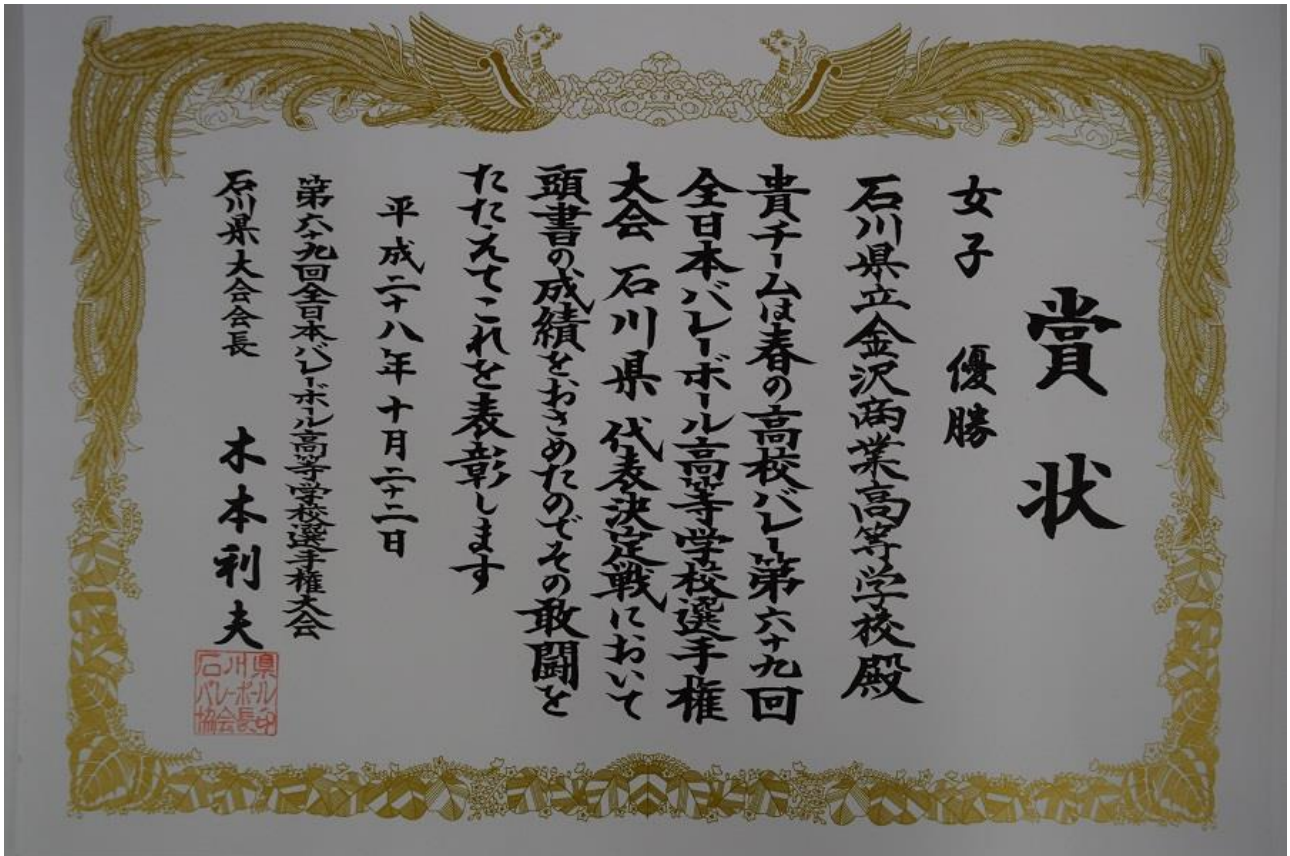 賞状
女子　優勝
石川県立金沢商業高等学校殿
貴チームは春の高校バレー第六十九回
全日本バレーボール高等学校選手権
大会 石川県 代表決定戦において
頭書の成績をおさめたのでその敢闘を
たたえてこれを表彰します
平成二十八年十月二十二日
第六十九回全日本バレーボール高等学校選手権大会
石川県大会会長　木本利夫
石川県
バレーボール
協会長印